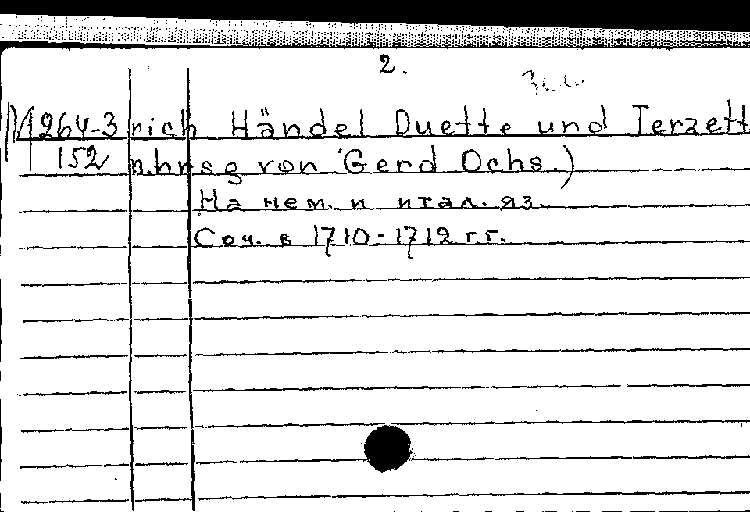 2.
М 264-3 rich Händel Duette und Terzett
152 n.hrsg von Gerd Ochs.)
На нем. и итал. яз.
Соч. в 1710-1712 г.г.